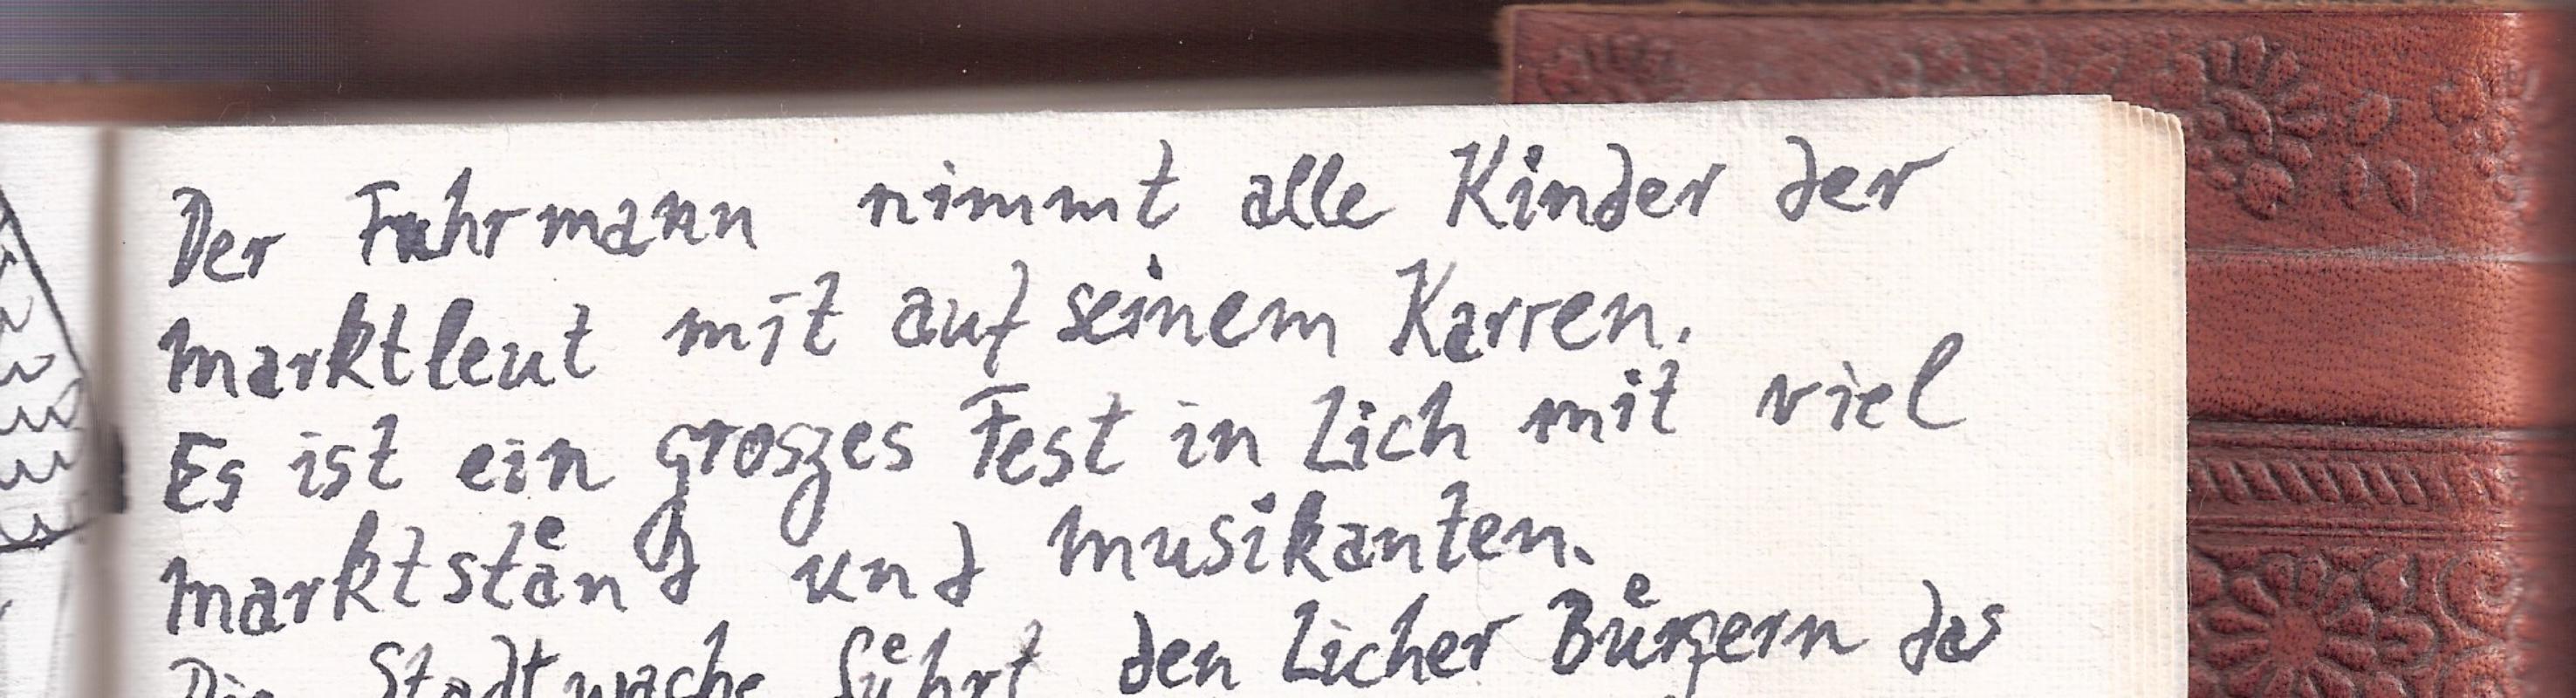 Der Fuhrmann nimmt alle Kinder der
Marktleut mit auf seinem Karren.
Es ist ein groszes Fest in Lich mit viel
Marktstaͤnd und Musikanten.
Die Stadtwache fuͤhrt den Licher Buͤrgern das